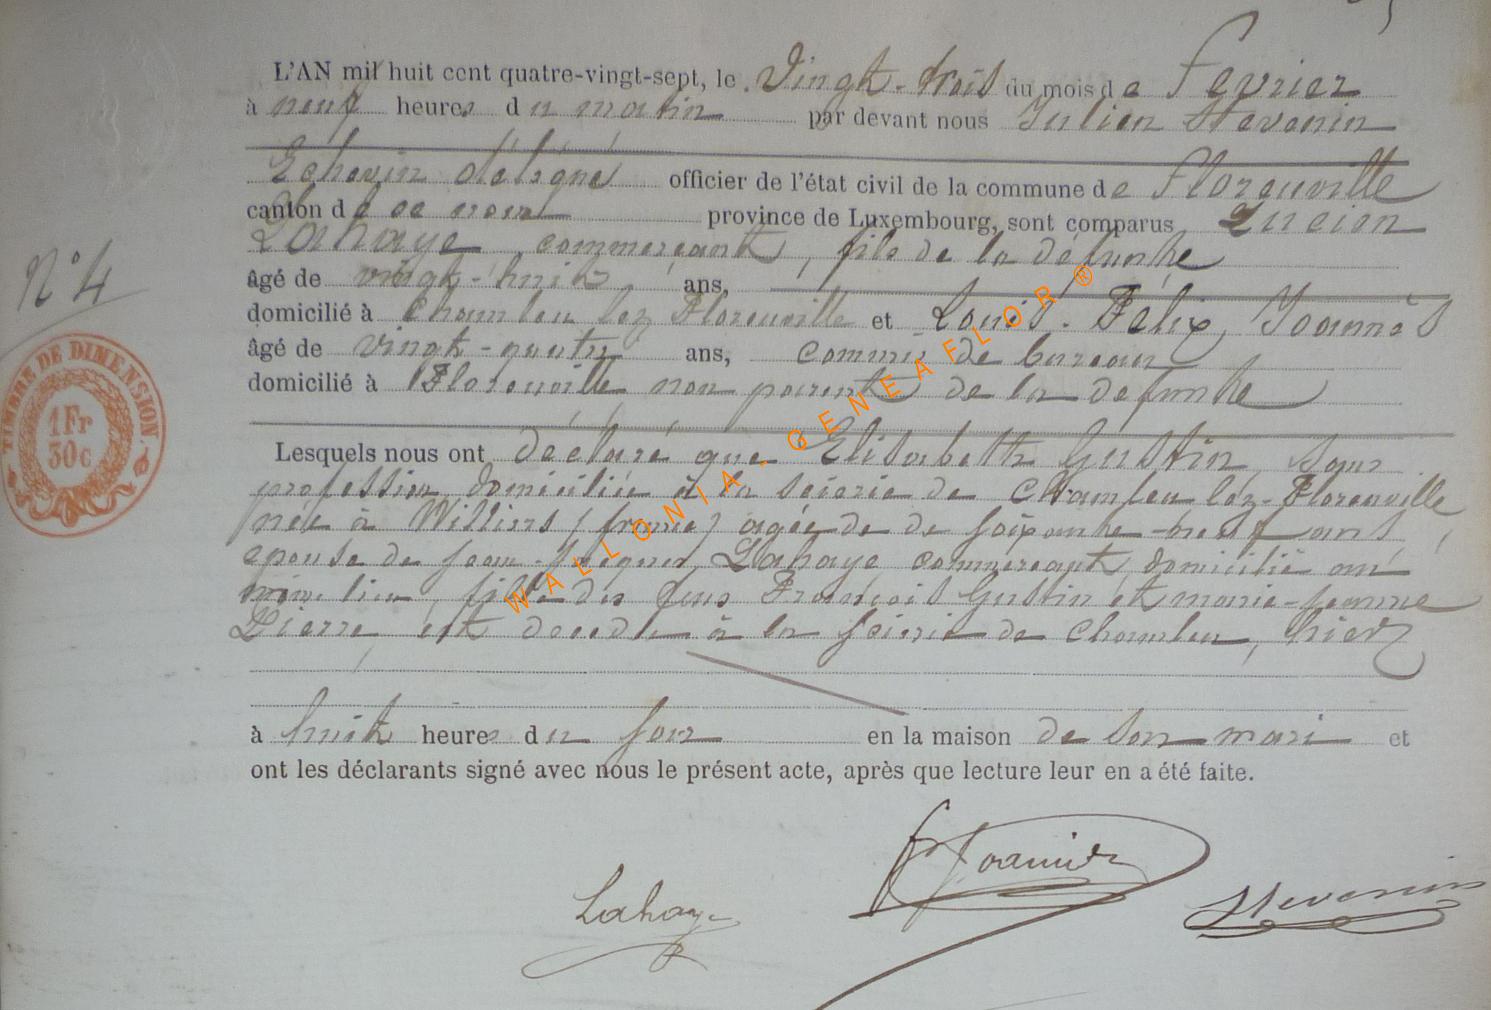 L'AN mil huit cent quatre-vingt-sept, le vingt-trois du mois de fevrier
à neuf heures du matin par devant nous Julien Stevenin
Echevin délégué officier de l'état civil de la commune de Florenville
canton de ce nom province de Luxembourg, sont comparus Lucien
Lahaye commerçant, fils de la défunte
N° 4
âgé de vingt-huit ans,
domicilié à Chamleu lez Florenville et Louis-Félix, Joannès
âgé de vingt-quatre ans, commis de bureau
domicilié à Florenville non parent de la defunte
TIMBRE DE DIMENSION.
1 Fr
30 c
Lesquels nous ont déclaré que Elisabeth Gustin, sans
profession domiciliée à la scierie de Chamleu lez-Florenville
née à Williers (france) agée de de soixante-neuf ans,
epouse de Jean- Lahaye commerçant, domicilié au
même lieu, fille des feus François Gustin et marie-jeanne
Pierre, est decedée à la scierie de Chamleu, hier
à huit heures du soir en la maison de son mari et
ont les déclarants signé avec nous le présent acte, après que lecture leur en a été faite.
Lahaye
Stevenin
WALLONIA-GENEAFLOR®